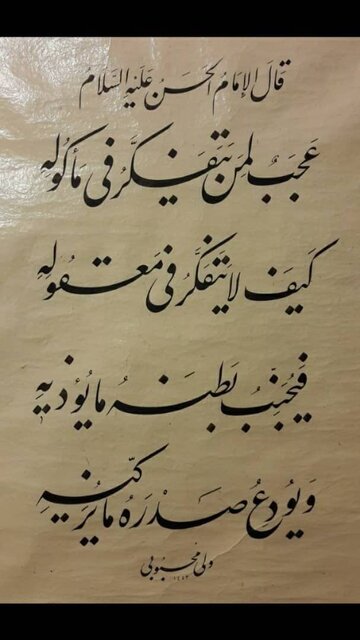 قَالَ الإِمَامُ الحَسَنُ عَلَيْهِ السَّلَامُ
عَجَبٌ لِمَنْ يَتَفَكَّرُ فِي مَأْكُولِهِ
كَيْفَ لَا يَتَفَكَّرُ فِي مَعْقُولِهِ
فَيُجَنِّبُ بَطْنَهُ مَا يُؤْذِيهِ
وَيُودِعُ صَدْرَهُ مَا يُزَكِّيهِ
ولی محبوبی